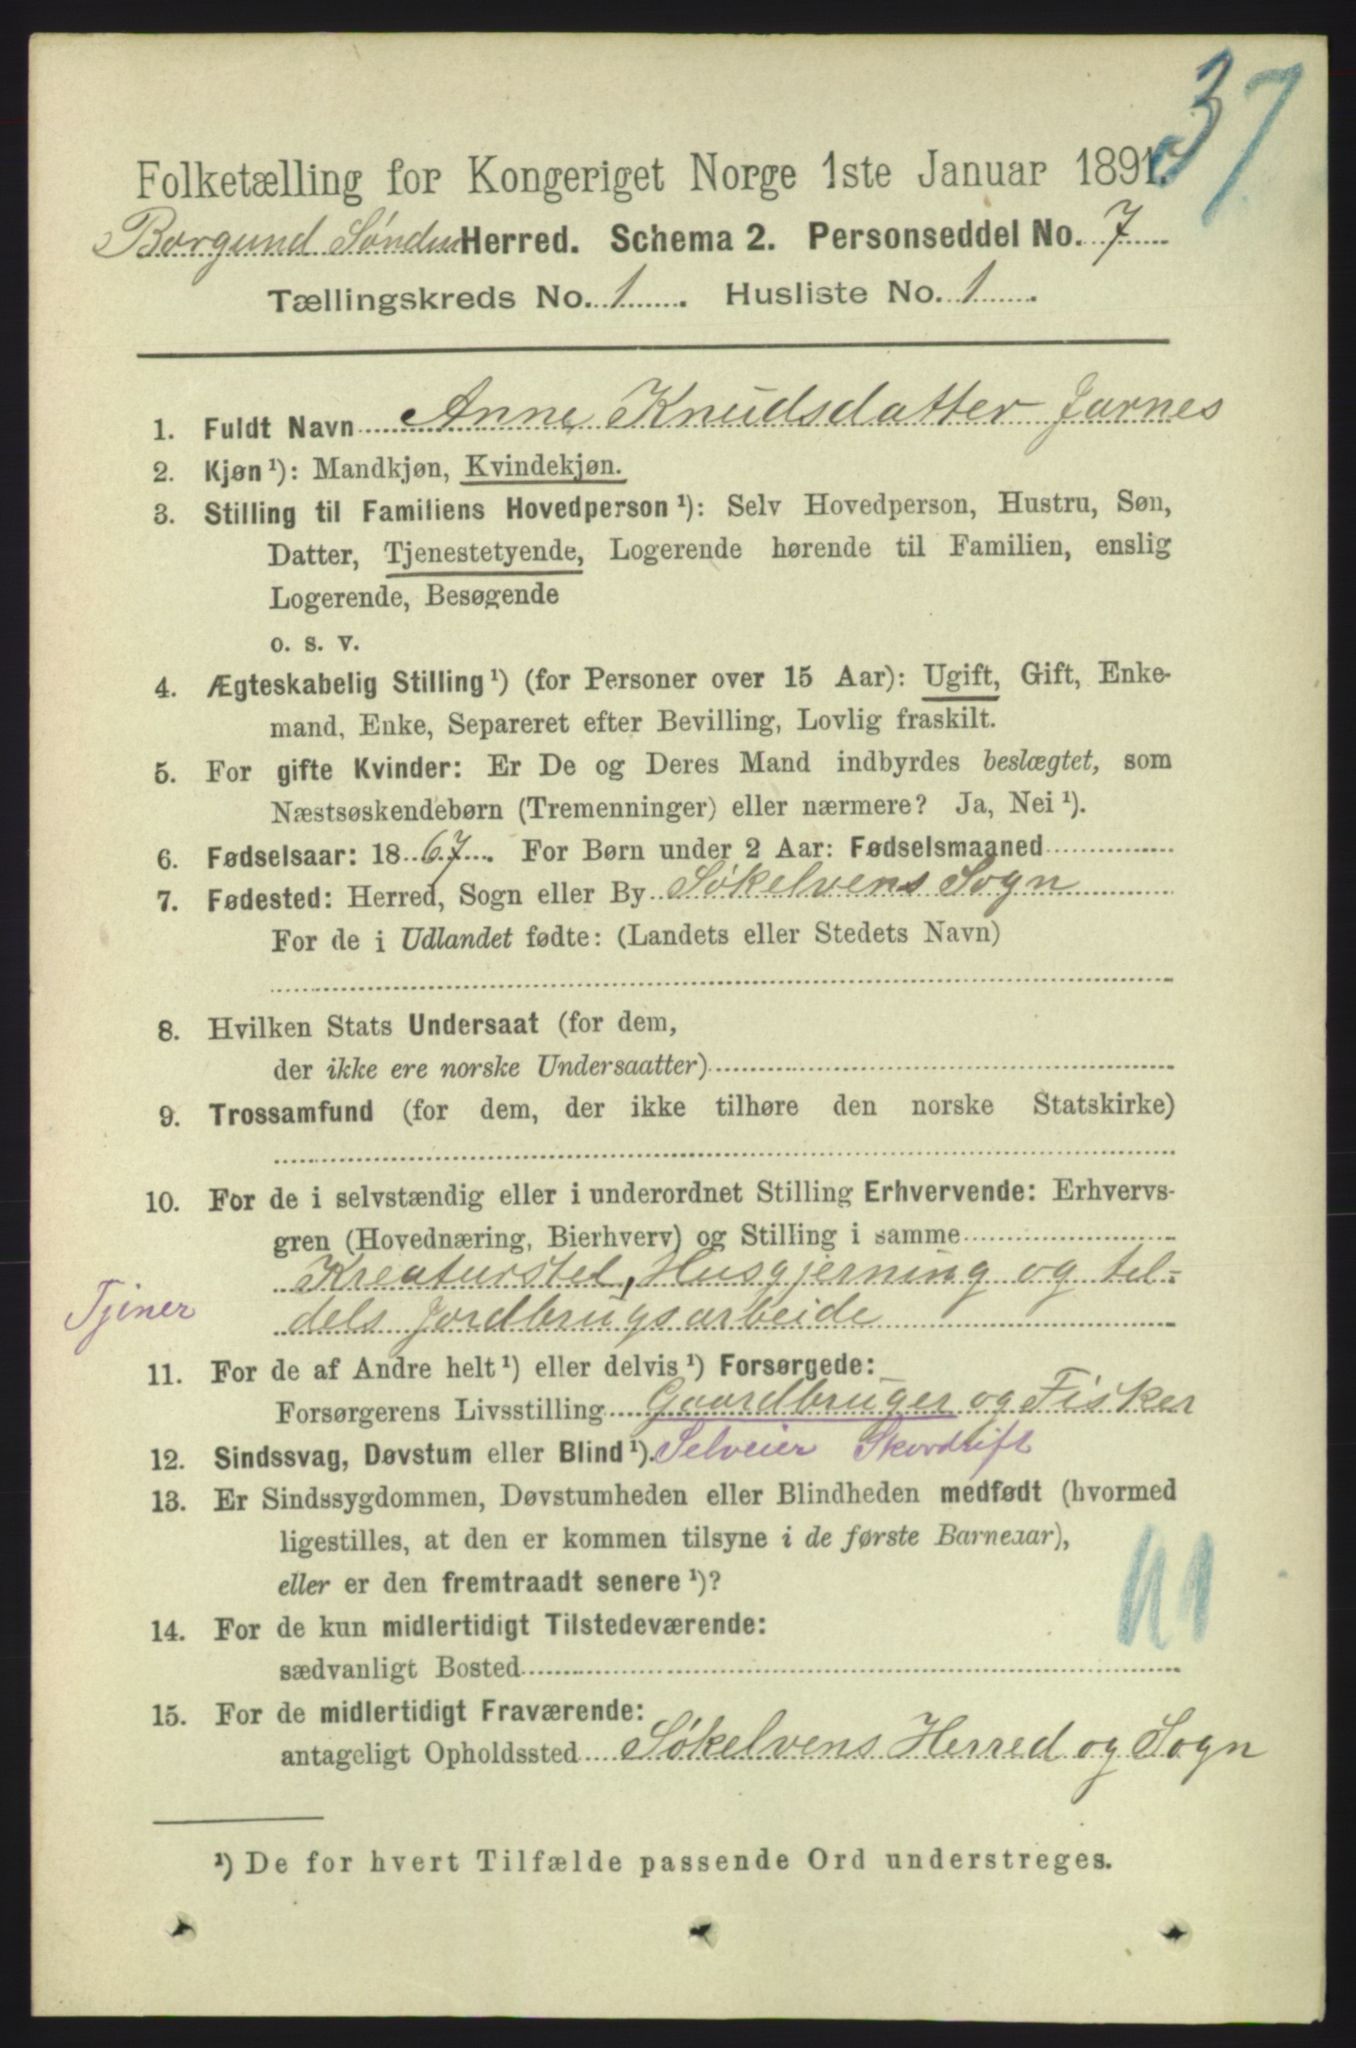 37
Folketælling for Kongeriget Norge 1ste Januar 1891.
Borgund Søndre Herred. Schema 2. Personseddel No. 7
Tællingskreds No. 1. Husliste No. 1.
1. Fuldt Navn Anne Knudsdatter Jarnes
2. Kjøn ¹): Mandkjøn, Kvindekjøn.
3. Stilling til Familiens Hovedperson ¹): Selv Hovedperson, Hustru, Søn,
Datter, Tjenestetyende, Logerende hørende til Familien, enslig
Logerende, Besøgende
o. s. v.
4. Ægteskabelig Stilling ¹) (for Personer over 15 Aar): Ugift, Gift, Enke-
mand, Enke, Separeret efter Bevilling, Lovlig fraskilt.
5. For gifte Kvinder: Er De og Deres Mand indbyrdes beslægtet, som
Næstsøskendebørn (Tremenninger) eller nærmere? Ja, Nei ¹).
6. Fødselsaar: 1867. For Børn under 2 Aar: Fødselsmaaned
7. Fødested: Herred, Sogn eller By Søkelvens Sogn
For de i Udlandet fødte: (Landets eller Stedets Navn)
8. Hvilken Stats Undersaat (for dem,
der ikke ere norske Undersaatter)
9. Trossamfund (for dem, der ikke tilhøre den norske Statskirke)
10. For de i selvstændig eller i underordnet Stilling Erhvervende: Erhvervs-
gren (Hovednæring, Bierhverv) og Stilling i samme
Kreaturstel, Husgjerning og til-
Tjiner dels Jordbrugsarbeide
11. For de af Andre helt ¹) eller delvis ¹) Forsørgede:
Forsørgerens Livsstilling Gaardbruger og Fisker
12. Sindssvag, Døvstum eller Blind ¹). Selveier Skovdrift
13. Er Sindssygdommen, Døvstumheden eller Blindheden medfødt (hvormed
ligestilles, at den er kommen tilsyne i de første Barneaar),
eller er den fremtraadt senere ¹)?
14. For de kun midlertidigt Tilstedeværende:
sædvanligt Bosted
15. For de midlertidigt Fraværende:
antageligt Opholdssted Søkelvens Herred og Sogn
¹) De for hvert Tilfælde passende Ord understreges.